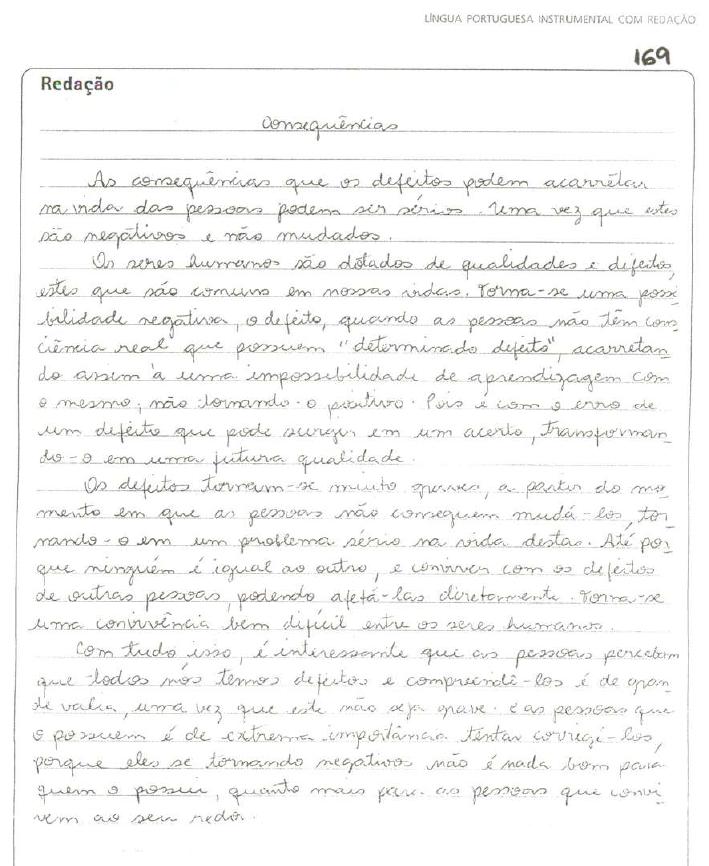 LÍNGUA PORTUGUESA INSTRUMENTAL COM REDAÇÃO
169
Redação
Consequências
As consequências que os defeitos podem acarretar
na vida das pessoas podem ser sérios. Uma vez que estes
são negativos e não mudados.
Os seres humanos são dotados de qualidades e defeitos,
estes que são comuns em nossas vidas. Torna-se uma possi
bilidade negativa, o defeito, quando as pessoas não têm cons
ciência real que possuem "determinado defeito", acarretan
do assim à uma impossibilidade de aprendizagem com
o mesmo, não tornando-o positivo. Pois é com o erro de
um defeito que pode surgir em um acerto, transforman
do-o em uma futura qualidade.
Os defeitos tornam-se muito graves, a partir do mo
mento em que as pessoas não conseguem mudá-los, tor
nando-o em um problema sério na vida destas. Até por
que ninguém é igual ao outro, e conviver com os defeitos
de outras pessoas, podendo afetá-las diretamente. Torna-se
uma convivência bem difícil entre os seres humanos.
Com tudo isso, é interessante que as pessoas percebam
que todos nós temos defeitos e compreendê-los é de gran
de valia, uma vez que este não seja grave. E as pessoas que
o possuem é de extrema importância tentar corrigi-los,
porque eles se tornando negativos não é nada bom para
quem o possui, quanto mais para as pessoas que convi
vem ao seu redor.